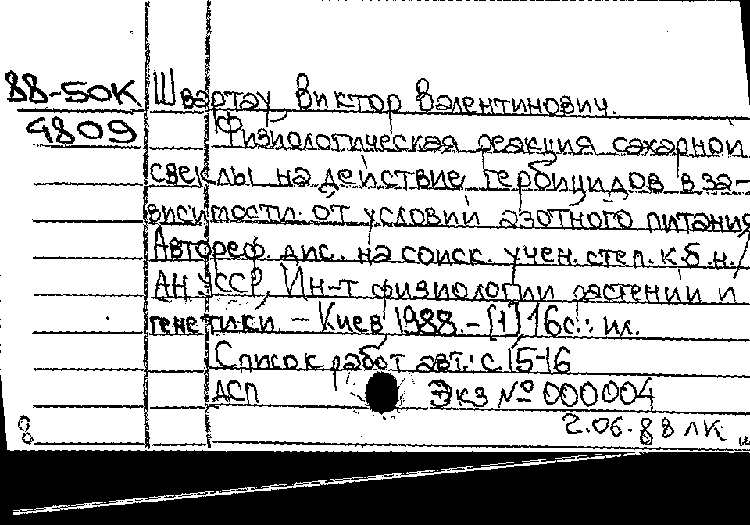 88-50К Швартау Виктор Валентинович.
4809 Физиологическая реакция сахарной
свеклы на действие гербицидов в за-
висимости от условий азотного питания
Автореф. дис. на соиск. учен. степ. к.б.н./
АН УССР, Ин-т физиологии растений и
генетики – Киев 1988. – [1] 16с.: ил.
Список работ авт.: с.15-16
ДСП Экз № 000004
2.06.88 ЛК
8